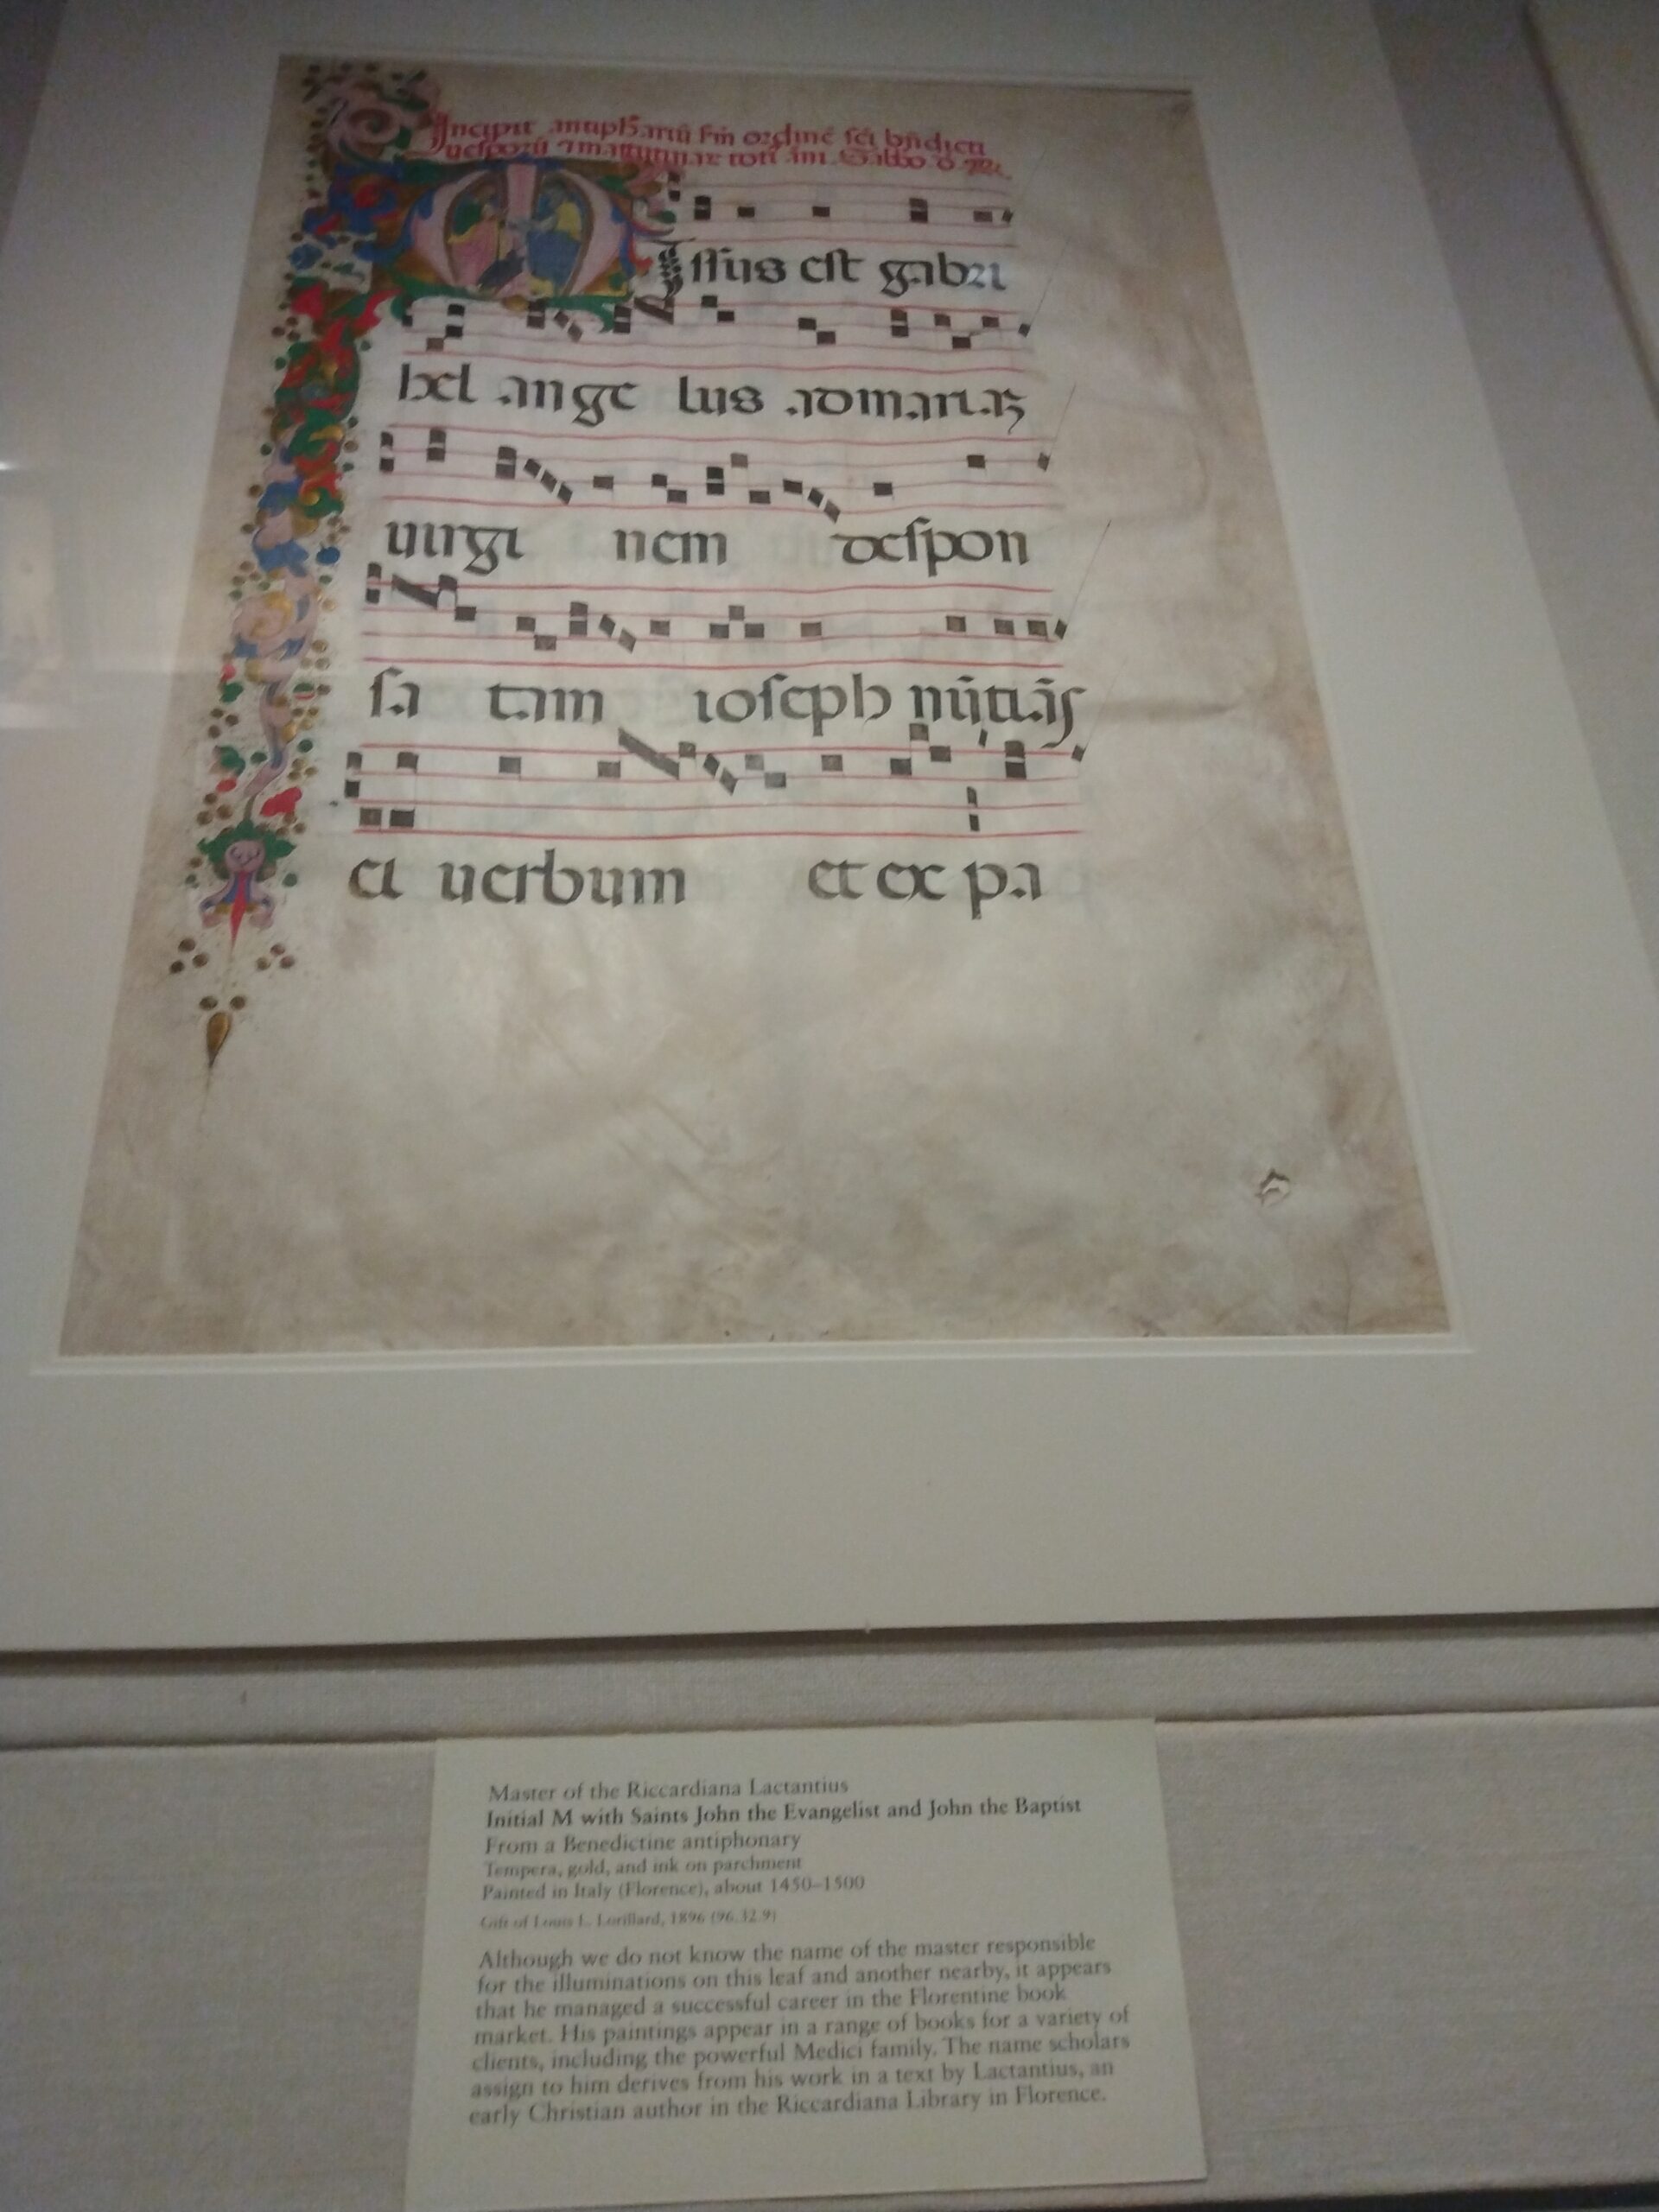 Incipit antiphanriū scđm ordinē scī bn̄dicti
uesporū
M
Issus est gabri
hel ange lus ad mariaꝫ
uirgi nem despon
sa tam ioseph nūtiās
ei uerbum et ex pa
Master of the Riccardiana Lactantius
Initial M with Saints John the Evangelist and John the Baptist
From a Benedictine antiphonary
Tempera, gold, and ink on parchment
Painted in Italy (Florence), about 1450–1500
Gift of Louis L. Lorillard, 1896 (96.32.9)
Although we do not know the name of the master responsible
for the illuminations on this leaf and another nearby, it appears
that he managed a successful career in the Florentine book
market. His paintings appear in a range of books for a variety of
clients, including the powerful Medici family. The name scholars
assign to him derives from his work in a text by Lactantius, an
early Christian author in the Riccardiana Library in Florence.